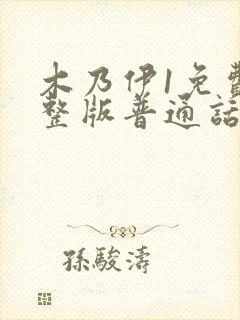 木乃伊1免費
整版普通話
孫駿濤